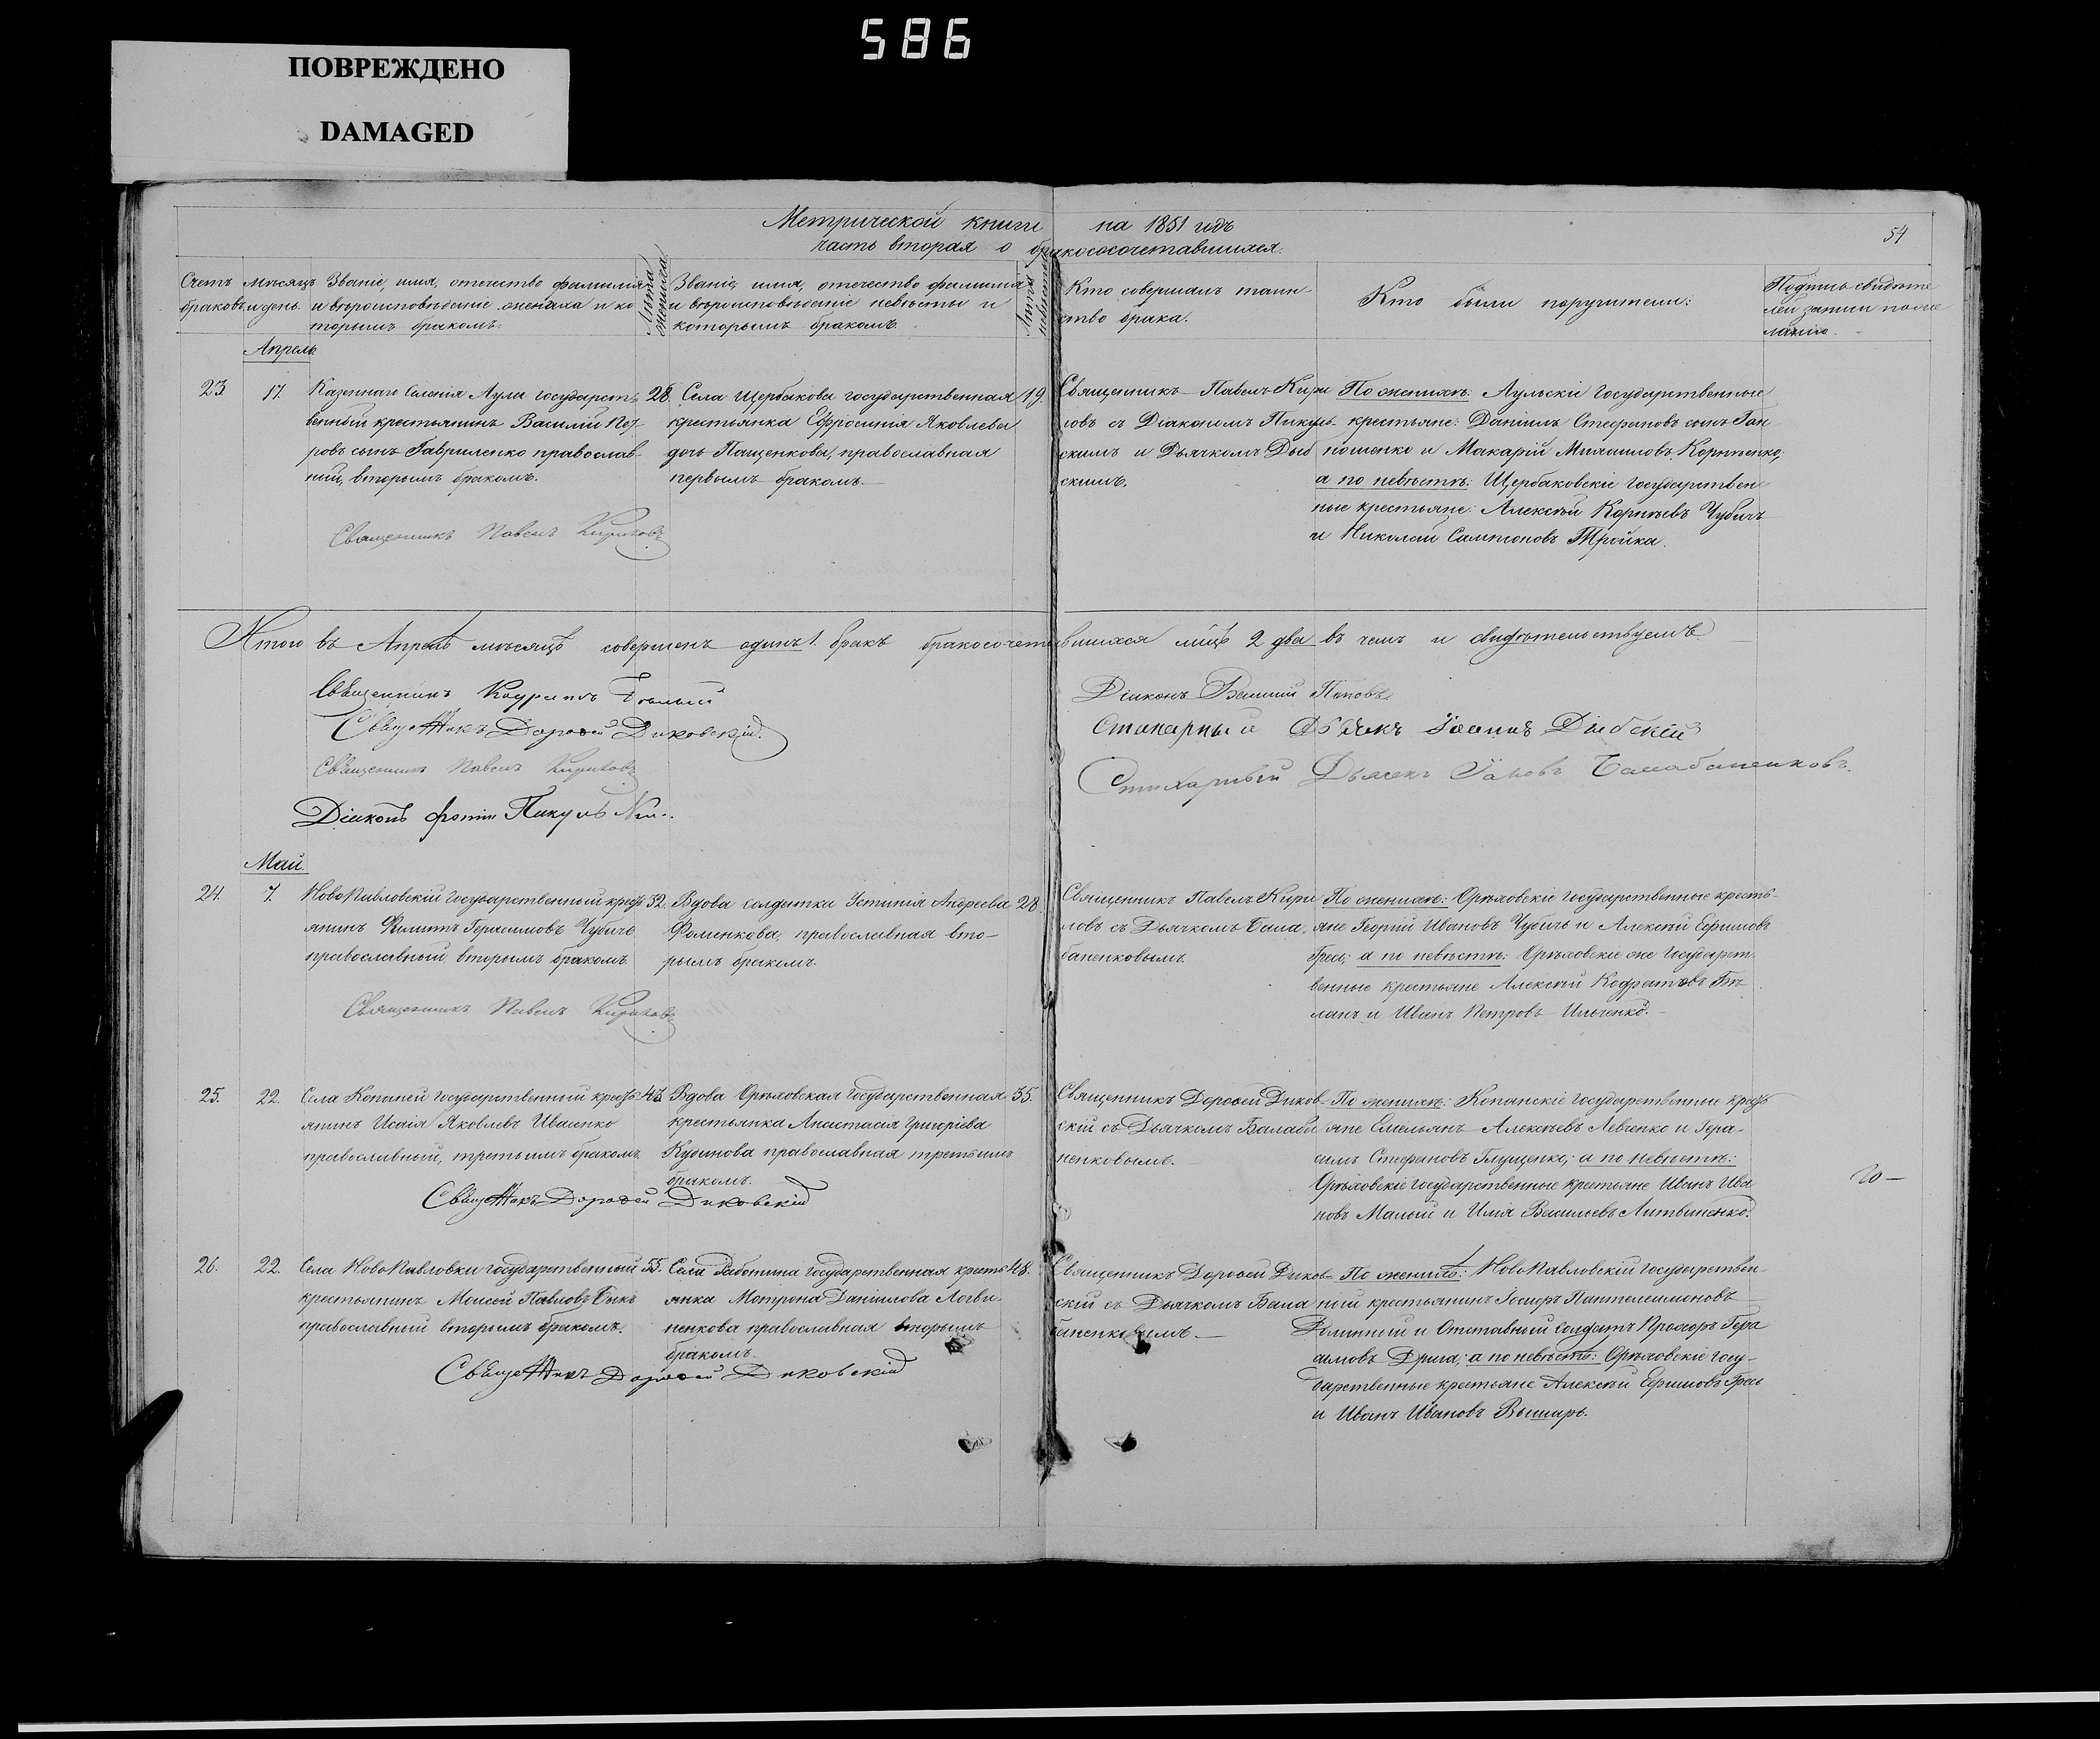 586
ПОВРЕЖДЕНО
DAMAGED
Метрической книги на 1851 годъ
54
часть вторая о бракосочетавшихся.
Счетъ браковъ
Мѣсяцъ и день
Званіе, имя, отчество фамилія
и вѣроисповѣданіе жениха и ко
торымъ бракомъ:
Лѣта жениха
Званіе, имя, отчество фамилія
и вѣроисповѣданіе невѣсты и
которымъ бракомъ.
Лѣта невѣсты
Кто совершалъ таин
ство брака.
Кто были поручители:
Подпись свидѣте
лей записи по же
ланію.
Апрель
23
17.
Казеннаго Селенія Аула государст-
венный крестьянинъ Василій Пет-
ровъ сынъ Гавриленко православ-
ный, вторымъ бракомъ.
28.
Села Щербакова государственная
крестьянка Ефросинія Яковлева
дочь Пащенкова, православная
первымъ бракомъ
19.
Священникъ Павелъ Кири
ловъ съ Діакономъ Пикуль-
скимъ и Дьячкомъ Дыб
скимъ.
По женихѣ: Аульскіе Государственные
крестьяне: Даніилъ Стефановъ сынъ Ган
ношенко и Макарій Михаиловъ Корнтенко,
а по невѣстѣ: Щербаковскіе Государствен
ные крестьяне: Алексѣй Корнѣевъ Чубичъ
и Николай Сампсоновъ Тройка.
Священникъ Павелъ Кириловъ
Итого въ Апрелѣ мѣсяцѣ совершенъ одинъ 1. бракъ бракосочетавшихся лицъ 2 два въ чемъ и свидѣтельствуемъ
Священникъ Кодратъ Бѣлый
Священникъ Дороѳей Диковскій.
Священникъ Павелъ Кириловъ
Діаконъ Фотій Пикуль
Діаконъ Василій Поповъ
Стихарный Дьячекъ Іоаннъ Дыбскій
Стихарный Дьячекъ Іаковъ Балабаненковъ.
Май.
24.
7.
НовоПавловскій Государственный крест
янинъ Филиппъ Герасимовъ Чубичъ
православный, вторымъ бракомъ.
32.
Вдова солдатка Устинія Андреева
Фоменкова, православная вто-
рымъ бракомъ.
28.
Священникъ Павелъ Кири
ловъ съ Дьячкомъ Бала
баненковымъ.
По женихѣ: Орѣховскіе Государственные кресть-
яне Георгій Ивановъ Чубичъ и Алексѣй Ефимовъ
Гресь; а по невѣстѣ: Орѣховскіе же Государст
венные крестьяне Алексѣй Кодратовъ Бѣ
ланъ и Иванъ Петровъ Ильченко.
Священникъ Павелъ Кириловъ
25.
22.
Села Копаней Государственный крест
янинъ Исаія Яковлевъ Ивасенко
православный, третьимъ бракомъ.
43.
Вдова Орѣховская Государственная
крестьянка Анастасія Григоріева
Кудинова православная третьимъ
бракомъ.
35.
Священникъ Дороѳей Диков
скій съ Дьячкомъ Балаба
ненковымъ.
По женихѣ: Копанскіе Государственные крест
яне Емельянъ Алексѣевъ Левченко и Гера-
симъ Стефановъ Глущенко; а по невѣстѣ:
Орѣховскіе Государственные крестьяне Иванъ Ива
новъ Малый и Илія Василіевъ Литвиненко.
Священникъ Дороѳей Диковскій
26.
22.
Села НовоПавловки государственный
крестьянинъ Моисей Павловъ Быко
православный вторымъ бракомъ.
55.
Села Работина Государственная кресть
янка Мотрона Даніилова Логви-
ненкова православная вторымъ
бракомъ.
48.
Священникъ Дороѳей Диков
скій съ Дьячкомъ Бала
баненковымъ.
По женихѣ: НовоПавловскій Государствен-
ный крестьянинъ Іосифъ Пантелеимоновъ
и Отставный солдатъ Прохоръ Гера
симовъ Дрига; а по невѣстѣ: Орѣховскіе Госу-
дарственные крестьяне Алексѣй Ефимовъ Гресь
и Иванъ Ивановъ Вышарь.
Священникъ Дороѳей Диковскій